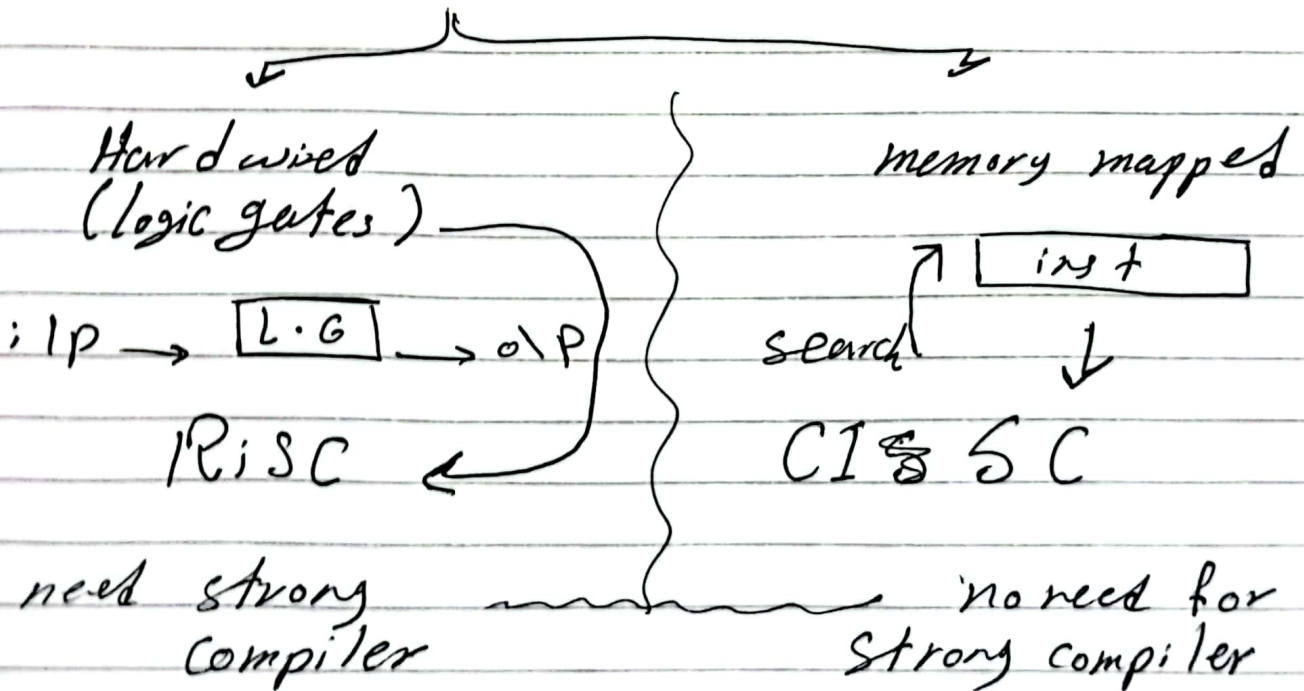 Hardwired
(logic gates)
i|p → L.G → o\p
RiSC
need strong
compiler
memory mapped
inst
search
CISC
no need for
strong compiler